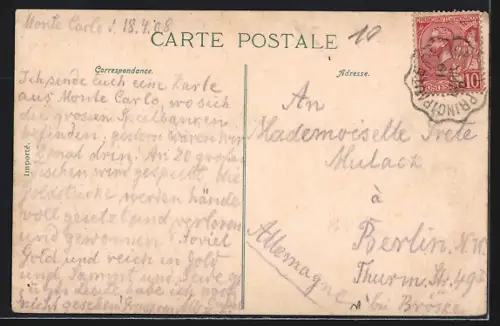 Monte Carlo d. 18.4.08
10
CARTE POSTALE
Correspondance.
Adresse.
Importé.
Ich sende Euch eine Karte
aus Monte Carlo, wo sich
die grossen Spielbanken
befinden, gestern waren wir
mal drin. An 20 großen
Tischen wird gespielt. Die
Goldstücke werden hände
voll gesetzt und verloren
und gewonnen. Soviel
Gold und reich in Gold
und Sammt und Seide
Leute habe ich noch
nicht gesehen
An
Mademoiselle Grete
Mulack
à
Berlin. N.W.
Thurm. Str. 49
bei Bröske
Allemagne
10